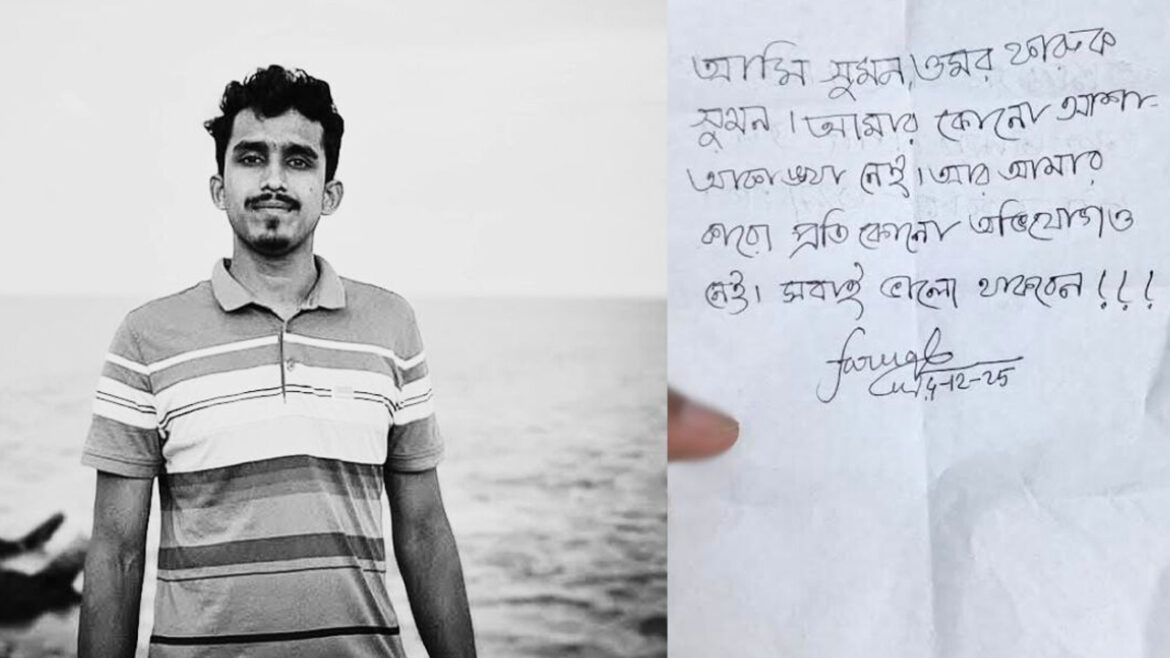 আমি সুমন, ওমর ফারুক
সুমন। আমার কোনো আশা-
আকাঙ্খা নেই। আর আমার
কারো প্রতি কোনো অভিযোগও
নেই। সবাই ভালো থাকবেন!!!
4-12-25